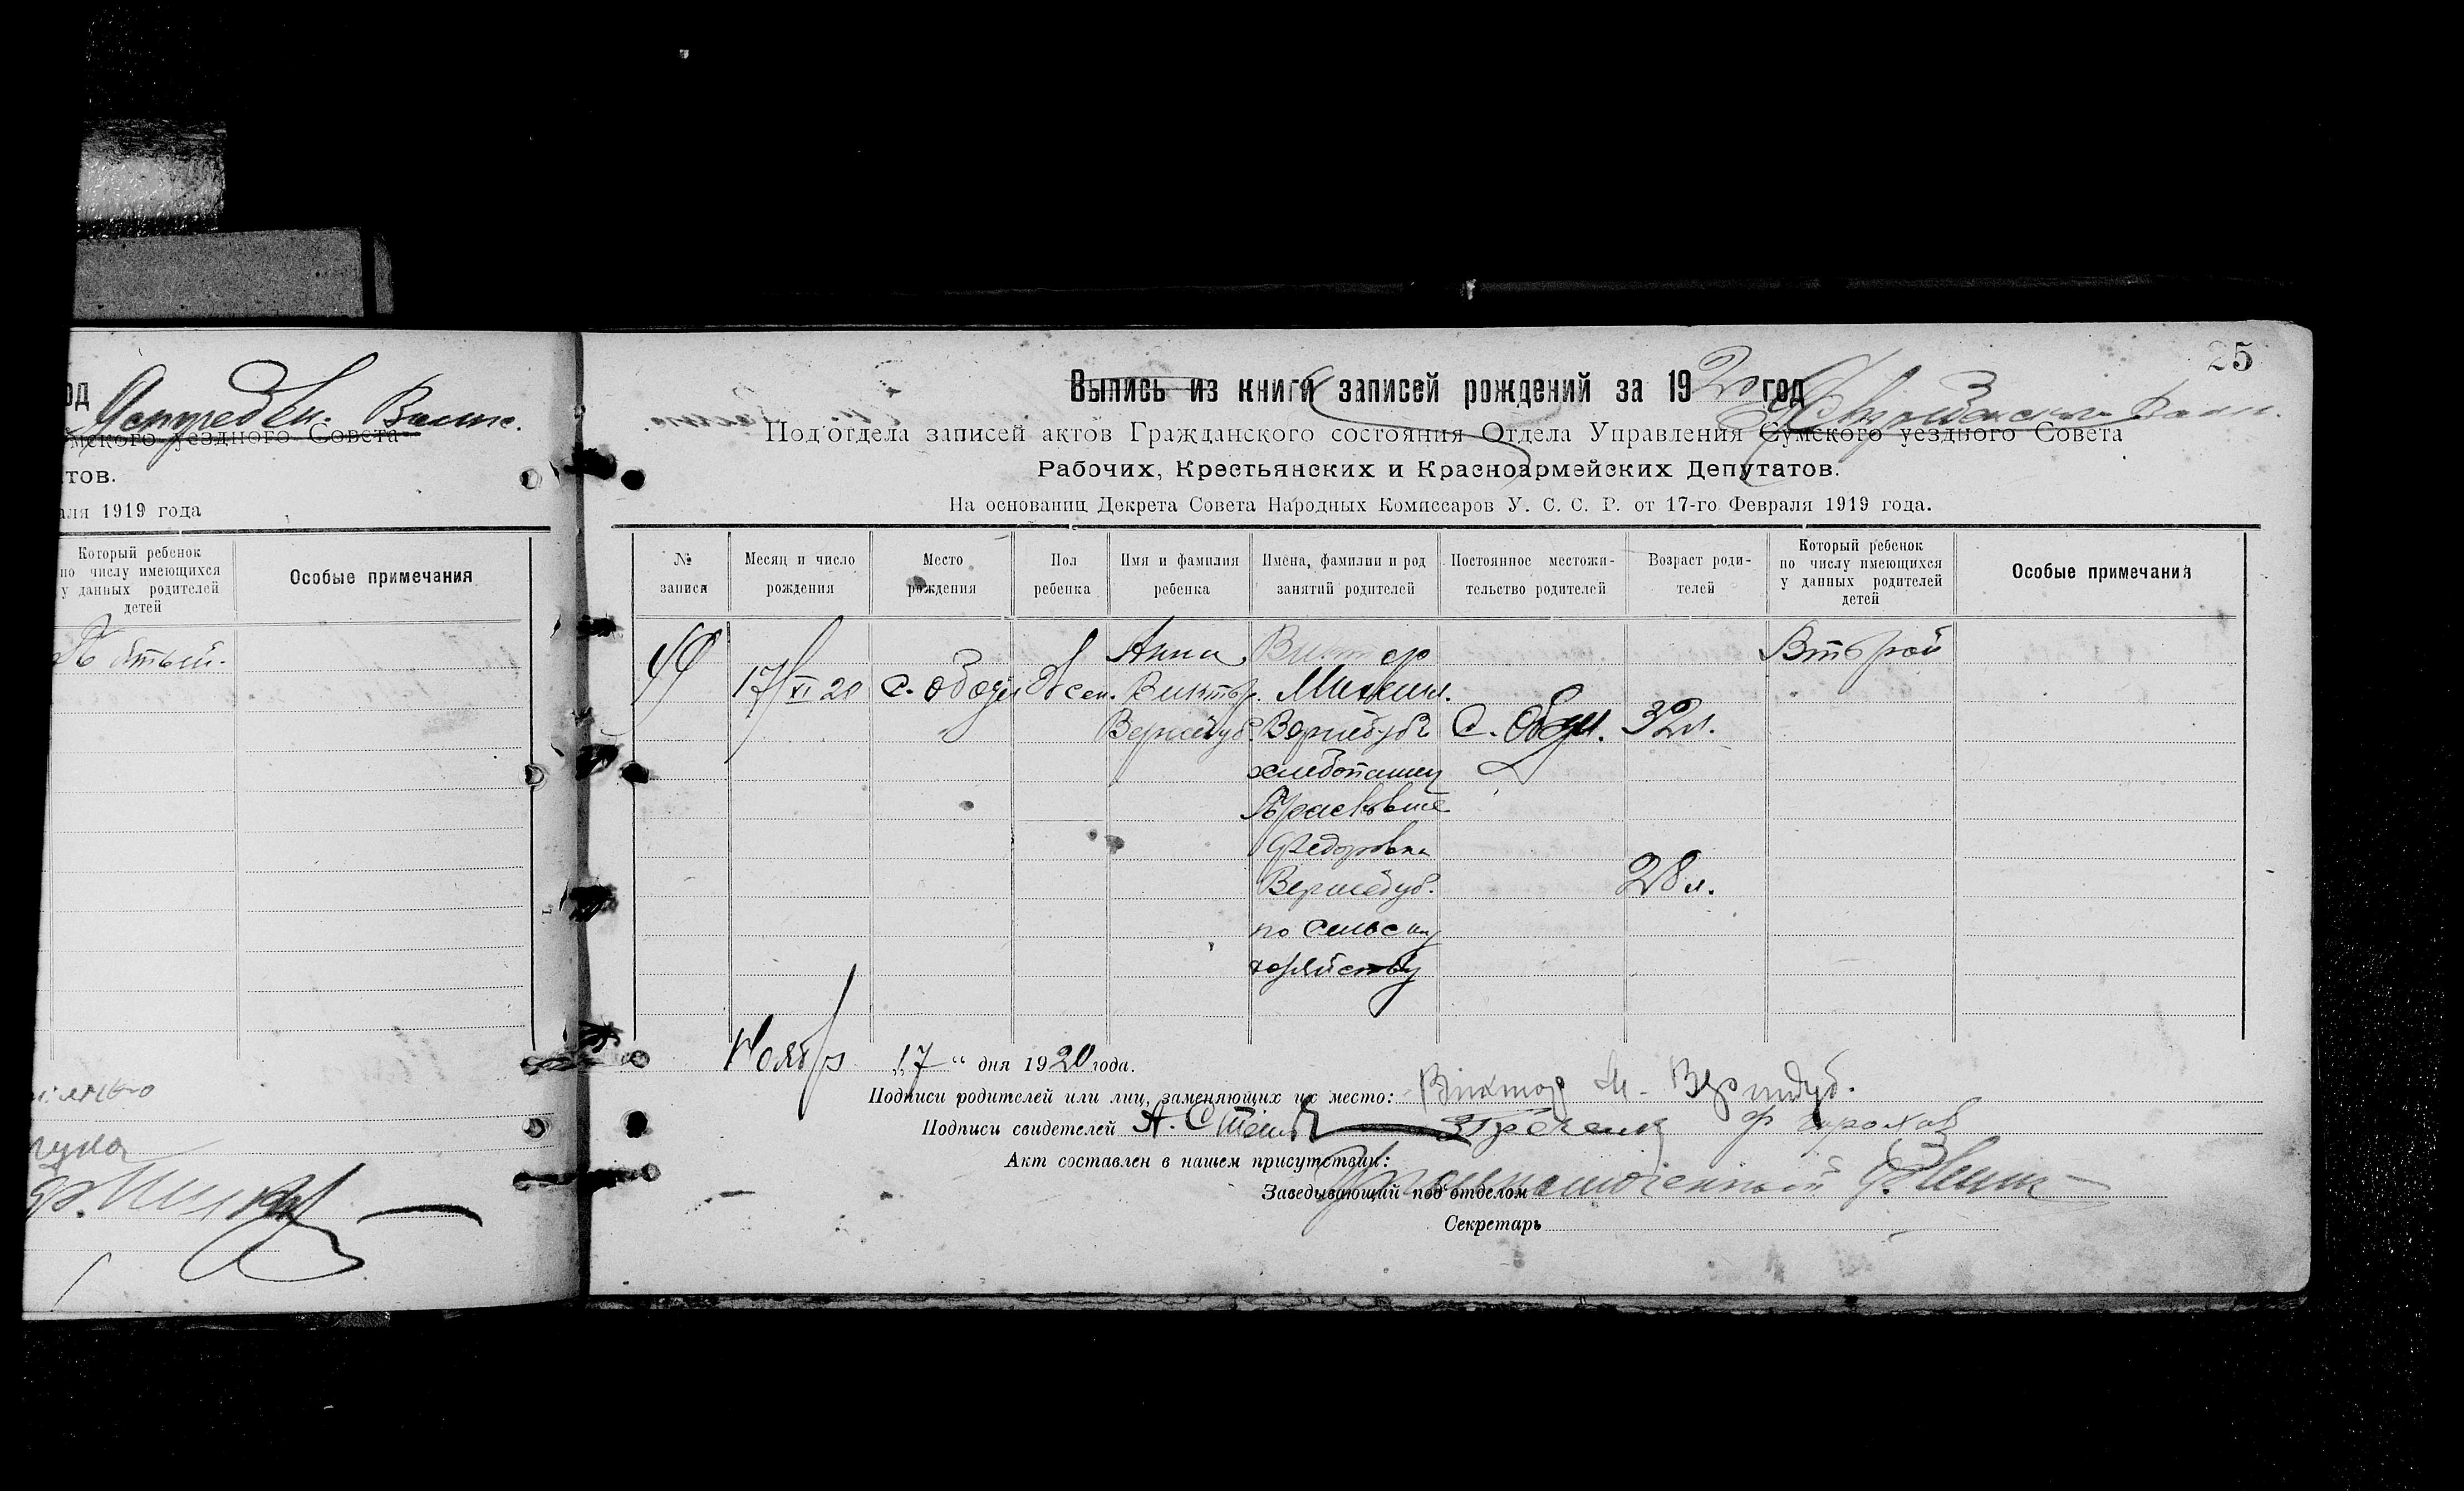 од Ястребен. Волис.
мского уездного Совета
тов.
аля 1919 года
Который ребенок
по числу имеющихся
у данных родителей
детей
Особые примечания
25
Выпись из книги записей рождений за 1920 год
Под'отдела записей актов Гражданского состояния Отдела Управления Сумского уездного Совета
Рабочих, Крестьянских и Красноармейских Депутатов.
На основании Декрета Совета Народных Комиссаров У. С. С. Р. от 17-го Февраля 1919 года.
№
записи
Месяц и число
рождения
Место
рождения
Пол
ребенка
Имя и фамилия
ребенка
Имена, фамилии и род
занятий родителей
Постоянное местожи-
тельство родителей
Возраст роди-
телей
Который ребенок
по числу имеющихся
у данных родителей
детей
Особые примечания
17/XI 20
с. Ободы
Жен.
Анна
Виктор.
Вернидуб.
Виктор
Михаил.
Вернидуб
хлебопашец
Федоровна
Вернидуб.
по сельск
хозяйству
с. Ободы.
32 л.
28 л.
Второй
Ноябр „17“ дня 1920 года.
Подписи родителей или лиц, заменяющих их место: Виктор М. Вернидуб.
Подписи свидетелей
Акт составлен в нашем присутствии:
Заведывающий под'отделом Уполномоченный
Секретарь